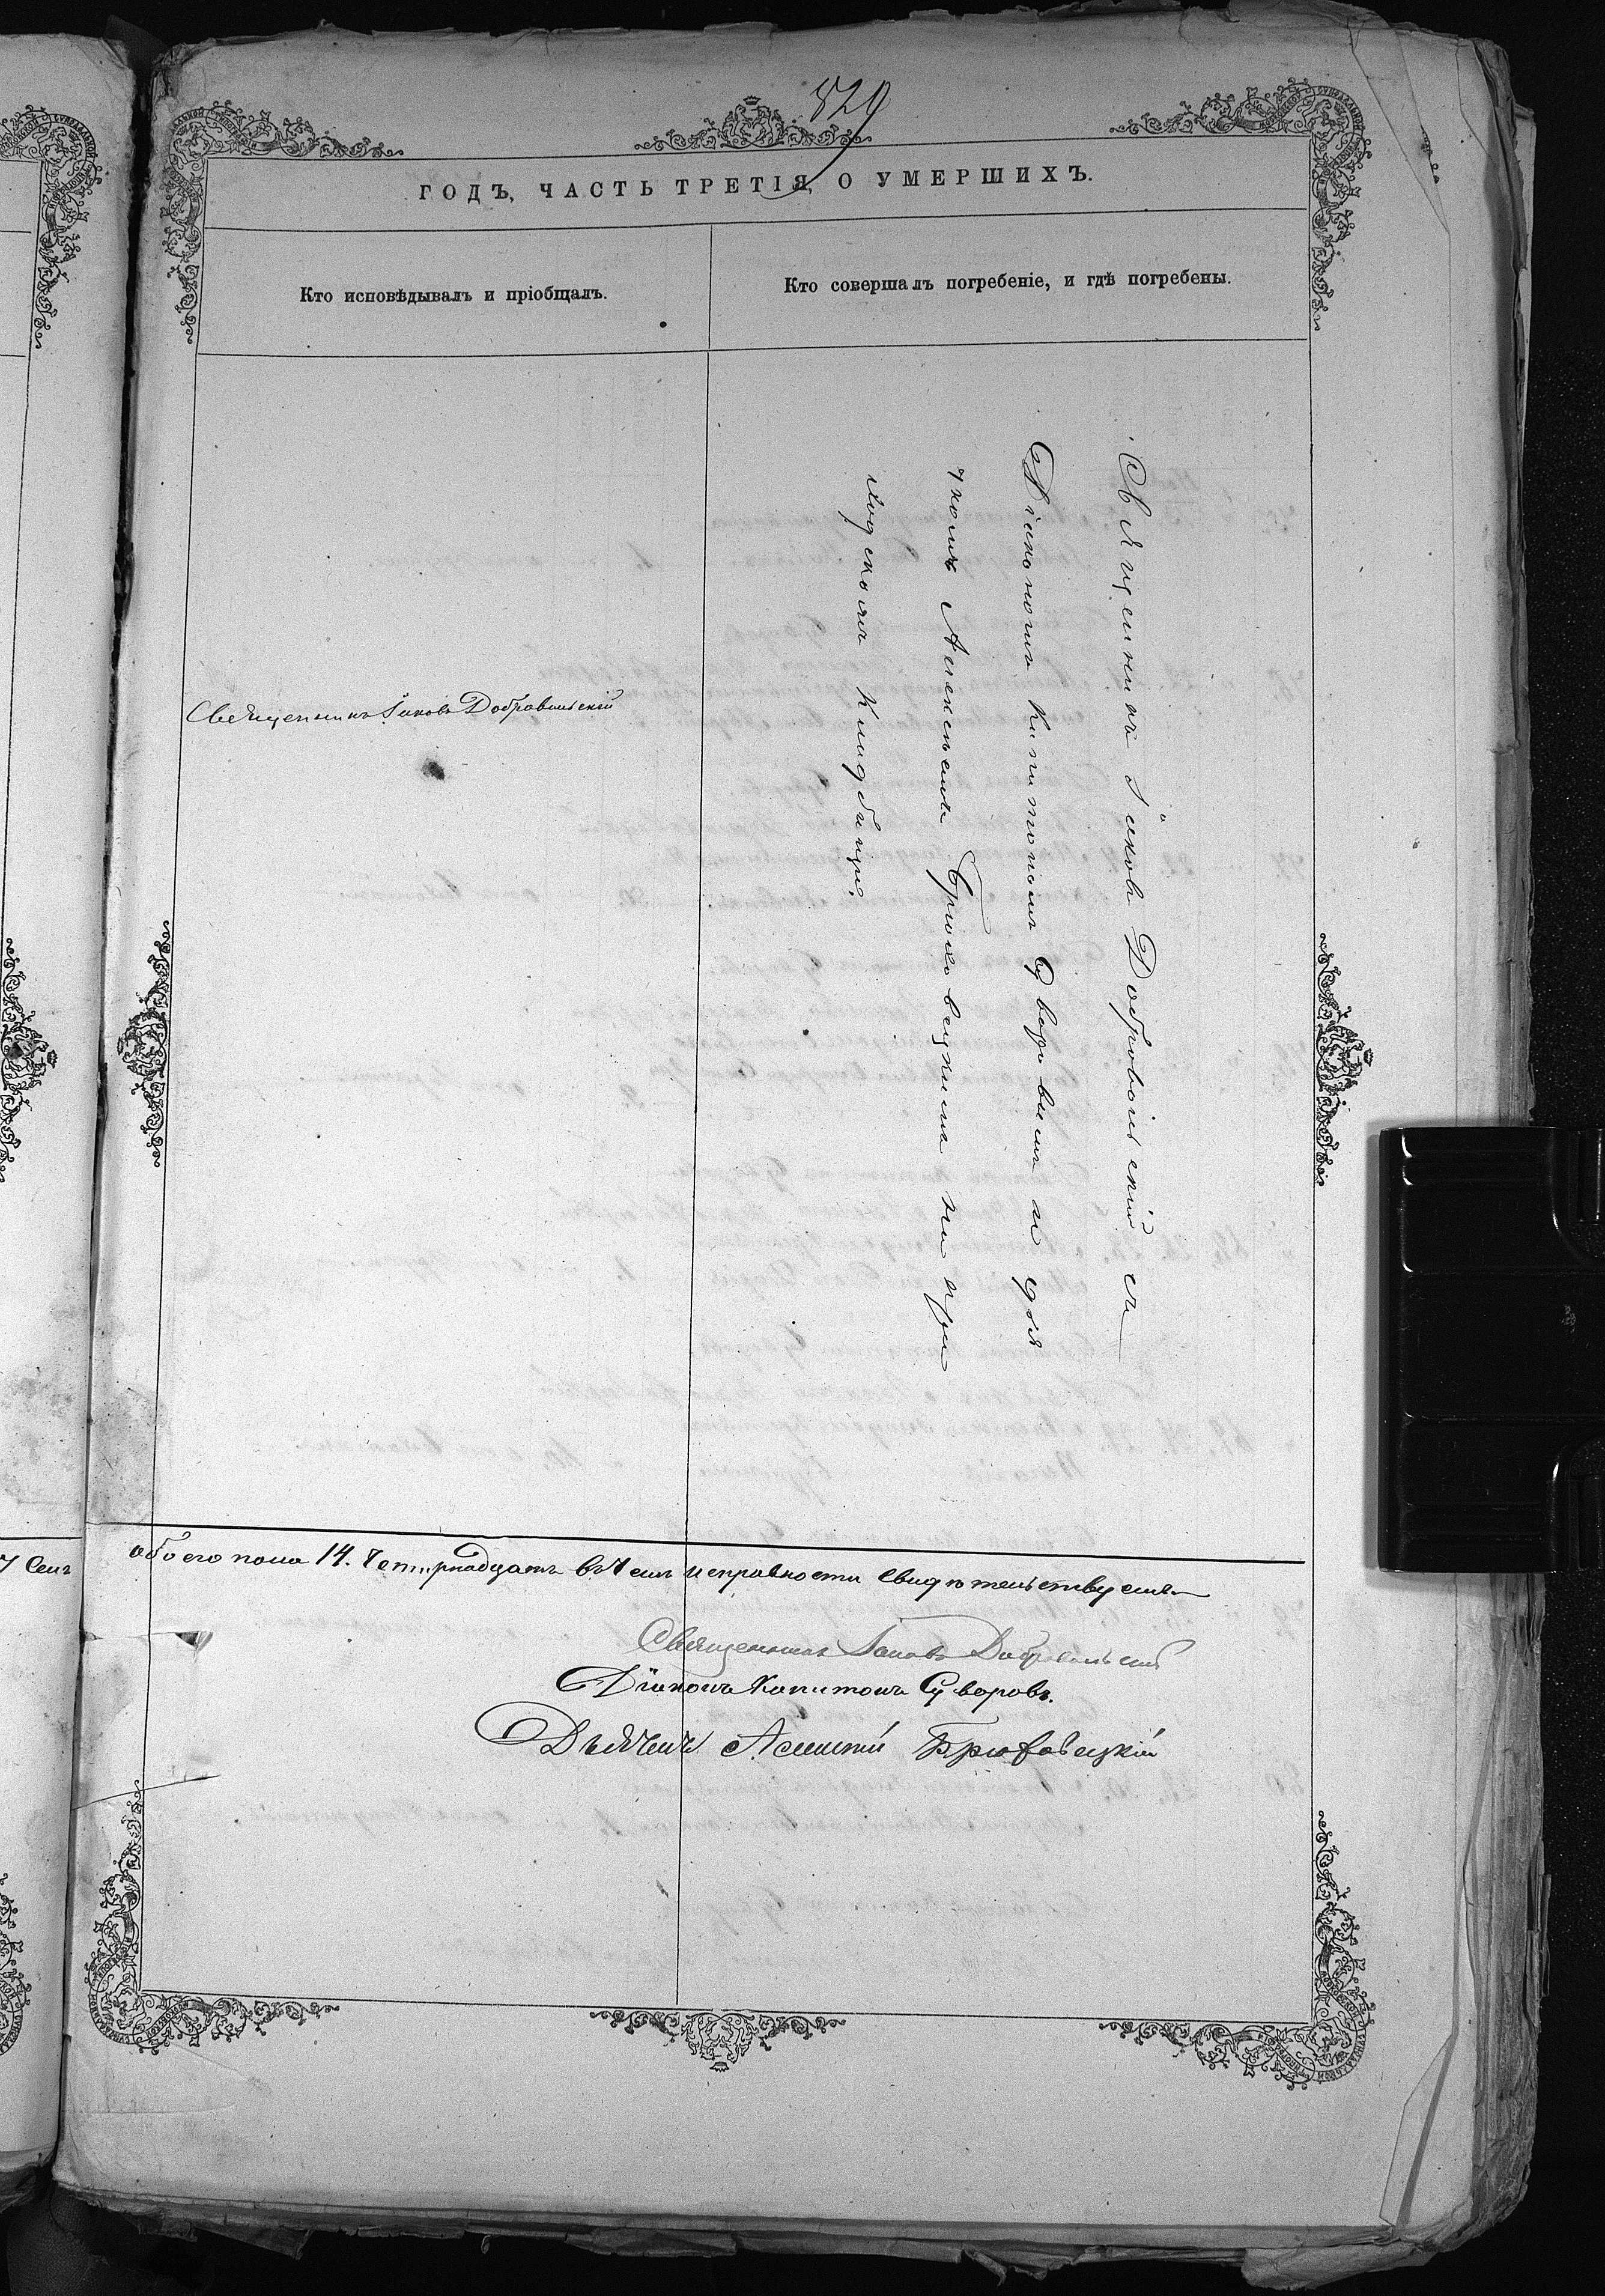 829
ГОДЪ, ЧАСТЬ ТРЕТІЯ, О УМЕРШИХЪ.
Кто исповѣдывалъ и пріобщалъ.
Кто совершалъ погребеніе, и гдѣ погребены.
Священникъ Іаковъ Добровольскій
Священникъ Іаковъ Добровольскій съ
Діакономъ Капитономъ Суворовымъ и дья
чкомъ Алексѣемъ Брюховецкимъ на при
ходскомъ кладбищѣ.
обоего пола 14. Четырнадцать въ чемъ исправности свидѣтельствуемъ
Священникъ Іаковъ Добровольскій
Діаконъ Капитонъ Суворовъ.
Дьячекъ Алексѣй Брюховецкій
7 Семъ